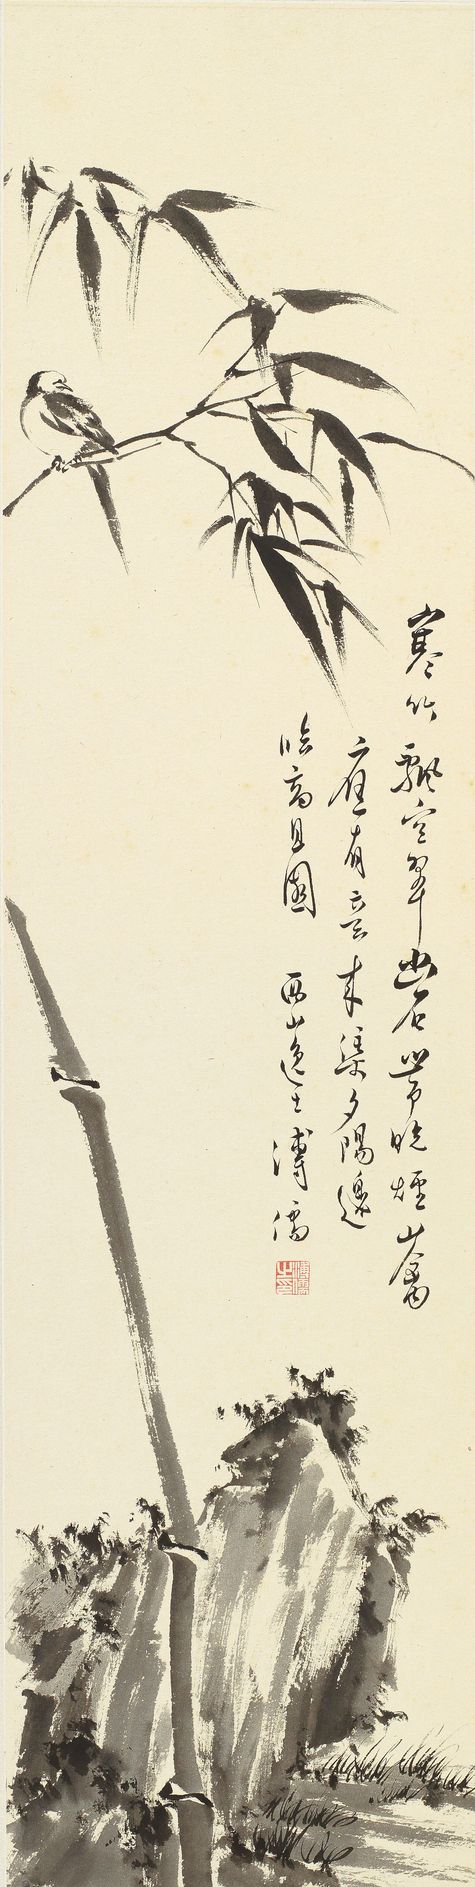 寒竹飄空翠幽石帶晚煙山禽
應有意來集夕陽邊
臨高且園 西山逸士溥儒
溥儒之印